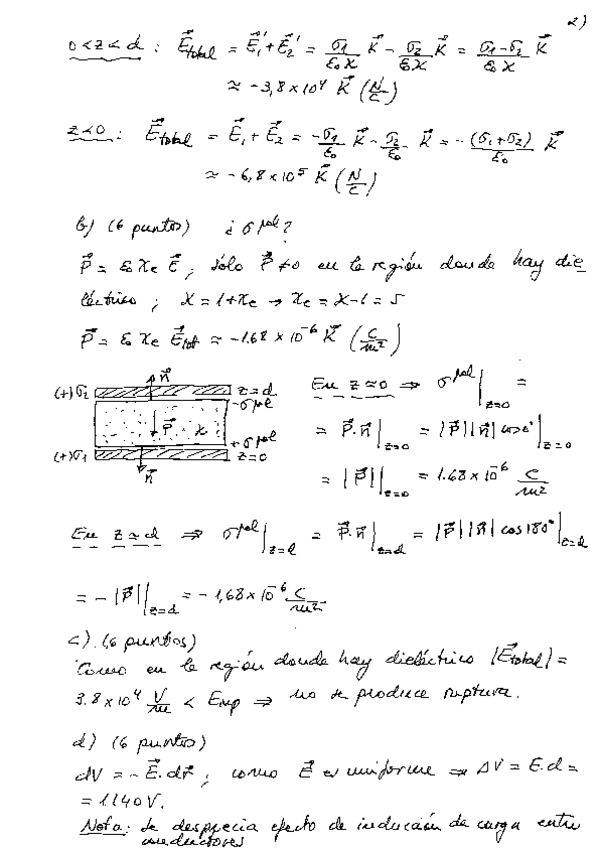 2)
0<z<d : E⃗total = E⃗₁' + E⃗₂' = σ1/ε₀χ K⃗ - σ2/ε₀χ K⃗ = σ1-σ2/ε₀χ K⃗
≈ -3,8×10⁴ K⃗ (N/C)
z<0 : E⃗total = E⃗₁ + E⃗₂ = -σ1/ε₀ K⃗ - σ2/ε₀ K⃗ = -(σ1+σ2)/ε₀ K⃗
≈ -6,8×10⁵ K⃗ (N/C)
b) (6 puntos) ¿ σ pol ?
P⃗ = ε₀ χe E⃗, sólo P⃗≠0 en la región donde hay die
léctrico ; χ = 1+χe → χe = χ-1 = 5
P⃗ = ε₀ χe E⃗tot ≈ -1.68 × 10⁻⁶ K⃗ (C/m²)
n⃗
(+)σ2 z=d
-σ pol
P⃗ χ
+σ pol
(+)σ1 z=0
n⃗
En z≈0 ⇒ σ pol|z=0 =
= P⃗.n⃗|z=0 = |P⃗||n⃗| cos0°|z=0
= |P⃗||z=0 = 1.68×10⁻⁶ C/m²
En z≈d ⇒ σ pol|z=d = P⃗.n⃗|z=d = |P⃗||n⃗| cos180°|z=d
= -|P⃗||z=d = -1,68×10⁻⁶ C/m²
c) (6 puntos)
Como en la región donde hay dieléctrico |E⃗total| =
3.8×10⁴ V/m < Erup ⇒ no se produce ruptura.
d) (6 puntos)
dV = -E⃗.dr⃗ ; como E⃗ es uniforme ⇒ ΔV = E.d =
= 1140V.
Nota: Se desprecia efecto de inducción de carga entre
conductores